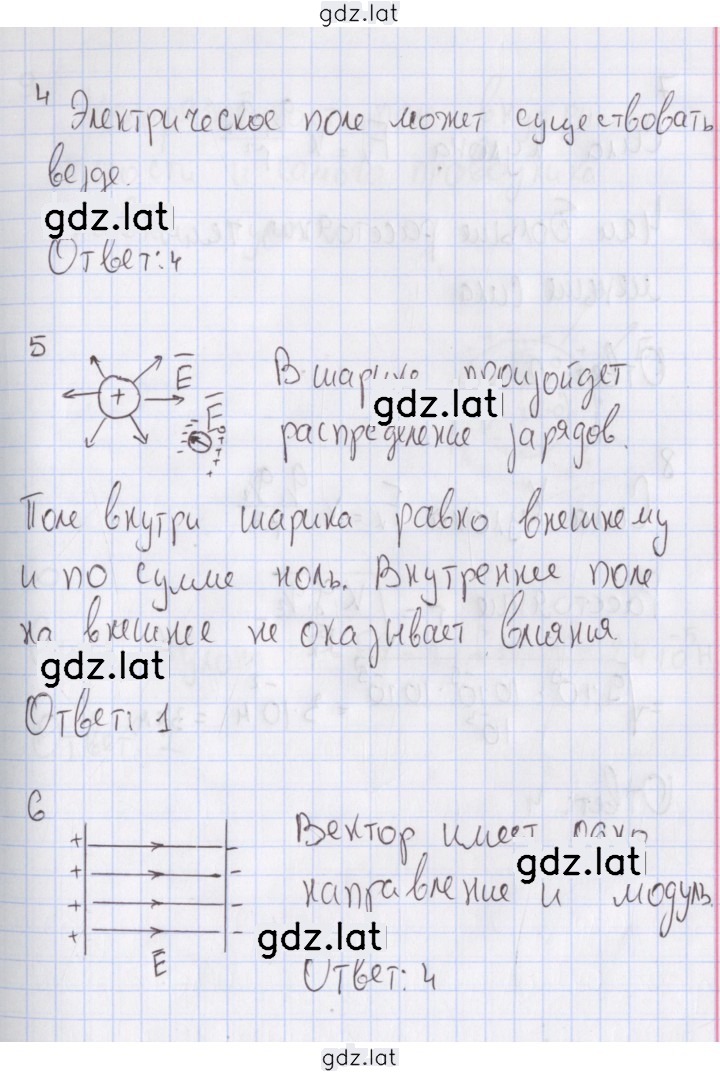 gdz.lat
4 Электрическое поле может существовать
везде.
gdz.lat
Ответ: 4
5
+
E
E
В шарике произойдет
gdz.lat
распределение зарядов.
Поле внутри шарика равно внешнему
и по сумме ноль. Внутреннее поле
на внешнее не оказывает влияния
gdz.lat
Ответ: 1
6
+ -
+ -
+ -
+ -
E
Вектор имеет
gdz.lat
направление и модуль.
gdz.lat
Ответ: 4
gdz.lat